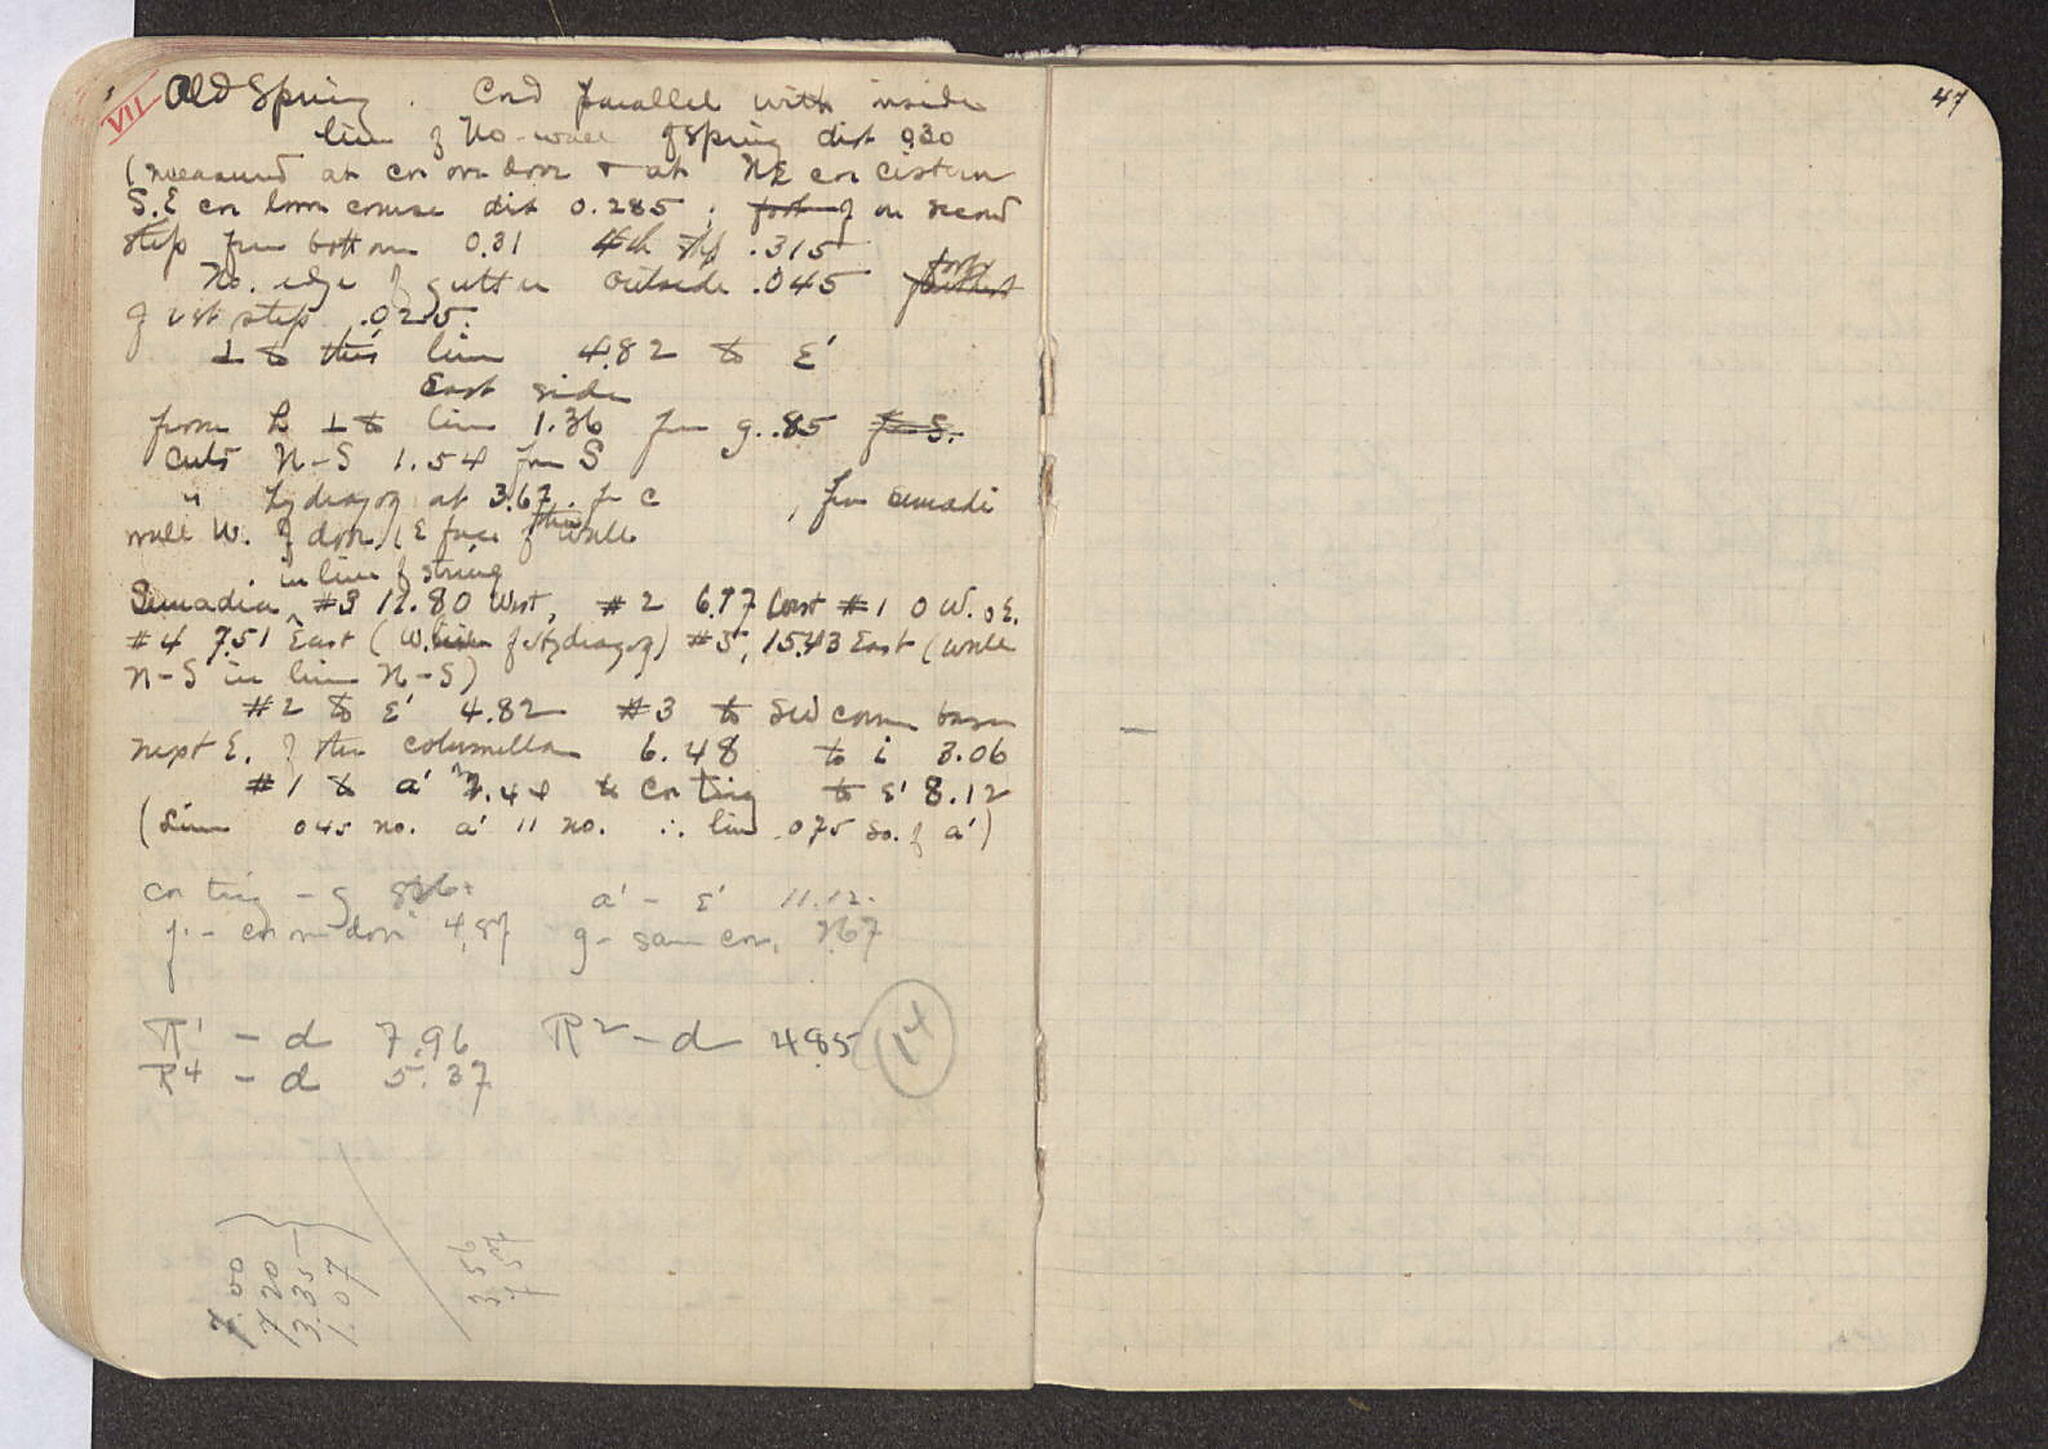 VII
Old Spring. Cord parallel with inside
line of No-wall of spring dist 0.30
(measured at cor orn door + at NE cor cistern
S.E cor lower course dist 0.285; foot of on second
step from bottom 0.31 4th step .315
No. edge of gutter outside .045 foot
of 1st step .025.
⊥ to this line 4.82 to ε'
East side
from h ⊥ to line 1.36 from g. .85 from S.
Cuts N-S 1.54 from S
" hydragog at 3.67. fr C , from semadi
wall W. of door (E face of this wall
in line of string
Semadia #3 11.80 West, #2 6.77 West #1 0 W. 0 E.
#4 7.51 East (W. line of Hydragog) #5, 15.43 East (wall
N-S in line N-S)
#2 to ε' 4.82 #3 to SW corner base
next E. of the columella 6.48 to i 3.06
#1 to a' 7.44 to Cor ting to ε' 8.12
(Line 045 no. a' 11 no. ∴ line .075 so. of a')
cor ting - g a' - ε' 11.12.
f. - cor orn door 4.87 g - same cor. 7.67
R¹ - d 7.96 R² - d 4.85 14
R⁴ - d 5.37
7.00
7 20
3.35
1.07
3 56
7 57
47